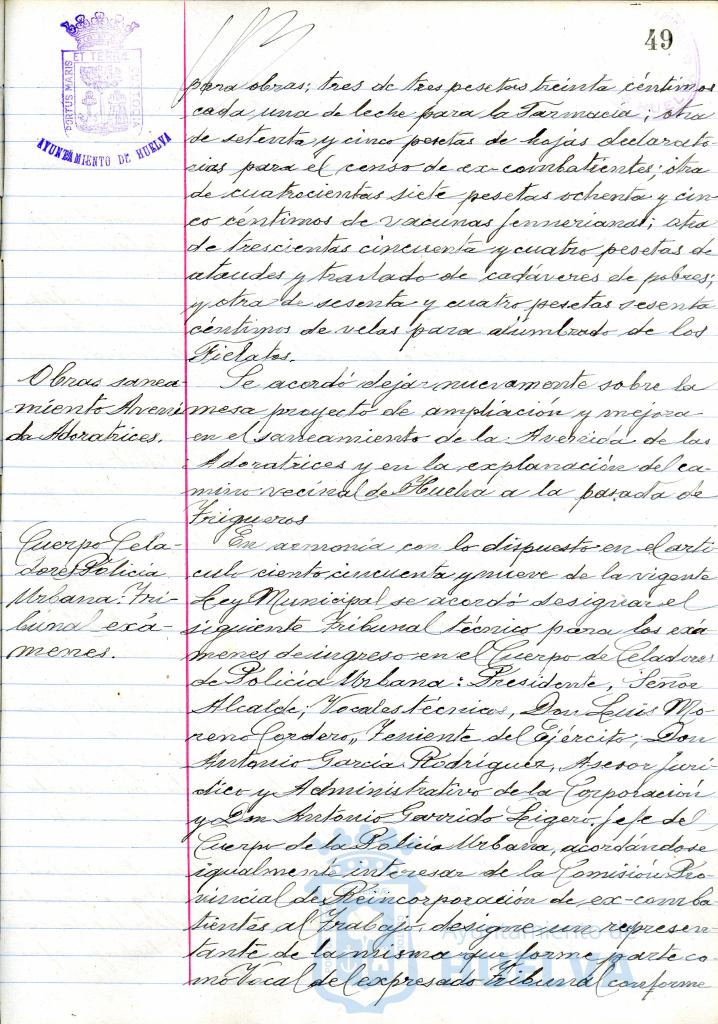 49
PORTUS MARIS
ET TERRÆ
CUSTODIA
AYUNTAMIENTO DE HUELVA
para obras; tres de tres pesetas treinta céntimos
cada una de leche para la Farmacia; otra
de setenta y cinco pesetas de hojas declarato-
rias para el censo de ex-combatientes; otra
de cuatrocientas siete pesetas ochenta y cin-
co céntimos de vacunas jennerianas; otra
de trescientas cincuenta y cuatro pesetas de
ataudes y traslado de cadáveres de pobres;
y otra de sesenta y cuatro pesetas sesenta
céntimos de velas para alumbrado de los
Fielatos.
Obras sanea-
miento Aveni
da Adoratrices.
Se acordó dejar nuevamente sobre la
mesa proyecto de ampliación y mejora
en el saneamiento de la Avenida de las
Adoratrices y en la explanación del ca-
mino vecinal de Huelva a la pasada de
Trigueros
Cuerpo Cela-
dores Policía
Urbana: Tri-
bunal exá-
menes.
En armonía con lo dispuesto en el arti-
culo ciento cincuenta y nueve de la vigente
Ley Municipal se acordó designar el
siguiente Tribunal técnico para los exá
menes de ingreso en el Cuerpo de Celadores
de Policía Urbana: Presidente, Señor
Alcalde; Vocales técnicos, Don Luis Mo
reno Cordero, Teniente del Ejército; Don
Antonio García Rodríguez, Asesor Jurí-
dico y Administrativo de la Corporación
y Don Antonio Garrido Ligero, Jefe del
Cuerpo de la Policía Urbana, acordándose
igualmente interesar de la Comisión Pro
vincial de Reincorporación de ex-comba
tientes al Trabajo, designe un represen-
tante de la misma que forme parte co-
mo Vocal del expresado Tribunal conforme
Ayuntamiento de
HUELVA